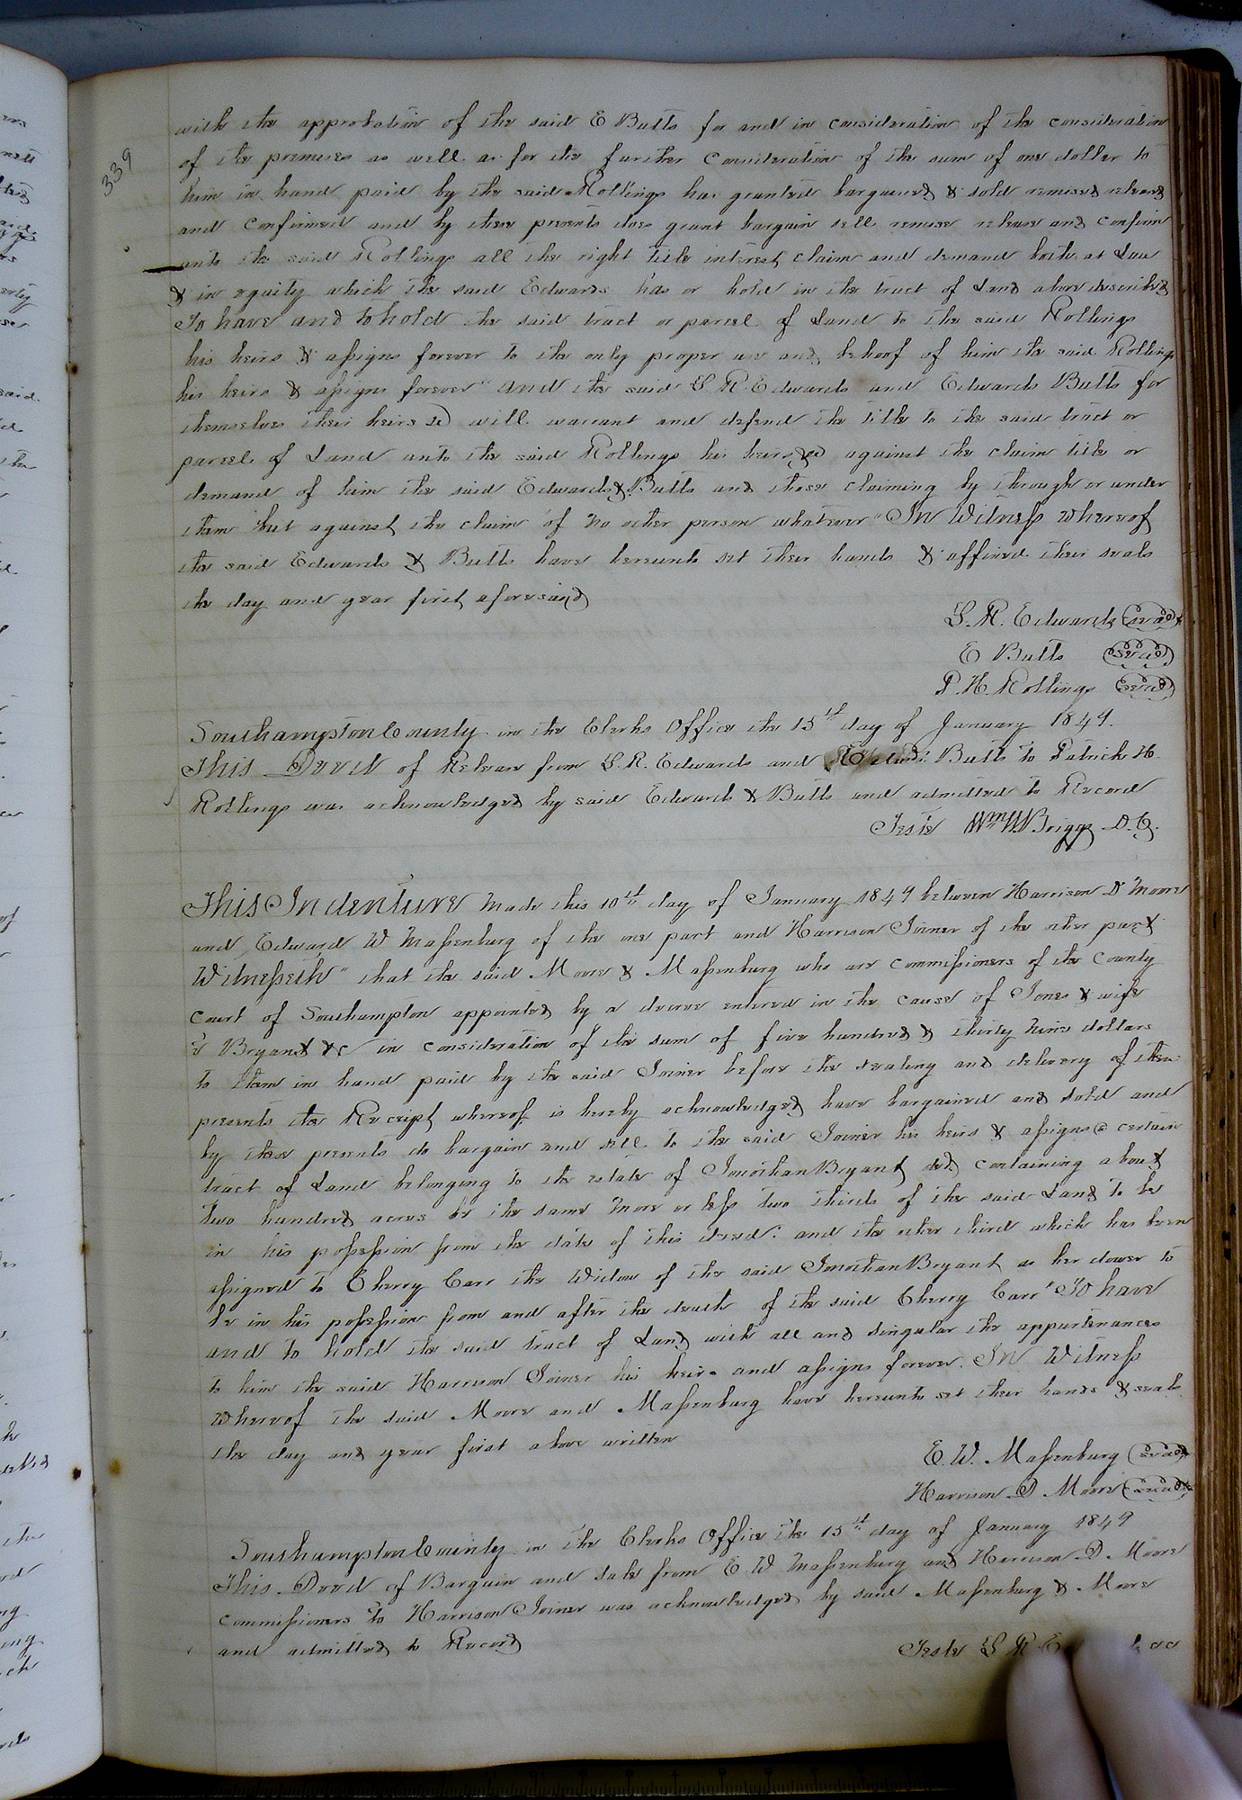 339
with the approbation of the said E Butts for and in consideration of the consideration
of the premises as well as for the further consideration of the sum of one dollar to
him in hand paid by the said Rollings has granted bargained & sold remised released
and confirmed and by these presents does grant bargain sell remise release and confirm
unto the said Rollings all the right title interest claim and demand both at Law
& in equity which the said Edwards has or hold in the tract of Land above described
To have and to hold the said tract or parcel of Land to the said Rollings
his heirs & assigns forever to the only proper use and behoof of him the said Rollings
his heirs & assigns forever" And the said L R Edwards and Edwards Butts for
themselves their heirs &c will warrant and defend the title to the said tract or
parcel of Land unto the said Rollings his heirs &c against the claim title or
demand of him the said Edwards & Butts and those claiming by through or under
them but against the claim of no other person whatever" In Witness whereof
the said Edwards & Butts have hereunto set their hands & affixed their seals
the day and year first aforesaid
L. R. Edwards (seal)
E Butts (seal)
P. H. Rollings (seal)
Southampton County in the Clerks Office the 15th day of January 1849.
This Deed of Release from L. R. Edwards and Butts to Patrick H.
Rollings was acknowledged by said Edwards & Butts and admitted to Record
Teste Wm W Briggs D.C.
This Indenture Made this 10th day of January 1849 between Harrison D Moore
and Edward W Massenburg of the one part and Harrison Joiner of the other part
Witnesseth" that the said Moore & Massenburg who are commissioners of the County
Court of Southampton appointed by a decree entered in the cause of Jones & wife
v Bryant &c in consideration of the sum of five hundred & thirty nine dollars
to them in hand paid by the said Joiner before the sealing and delivery of these
presents the Receipt whereof is hereby acknowledged have bargained and sold and
by these presents do bargain and sell to the said Joiner his heirs & assigns a certain
tract of Land belonging to the estate of Jonathan Bryant dcd containing about
two hundred acres be the same more or less two thirds of the said Land to be
in his possession from the date of this deed: and the other third which has been
assigned to Cherry Carr the Widow of the said Jonathan Bryant as her dower to
be in his possession from and after the death of the said Cherry Carr" To have
and to hold the said tract of Land with all and singular the appurtenances
to him the said Harrison Joiner his heirs and assigns forever. In Witness
whereof the said Moore and Massenburg have hereunto set their hands & seals
the day and year first above written
E. W. Massenburg (seal)
Harrison D Moore (seal)
Southampton County in the Clerks Office the 15th day of January 1849
This Deed of Bargain and sale from E. W Massenburg and Harrison D. Moore
commissioners to Harrison Joiner was acknowledged by said Massenburg & Moore
and admitted to Record
Teste L R